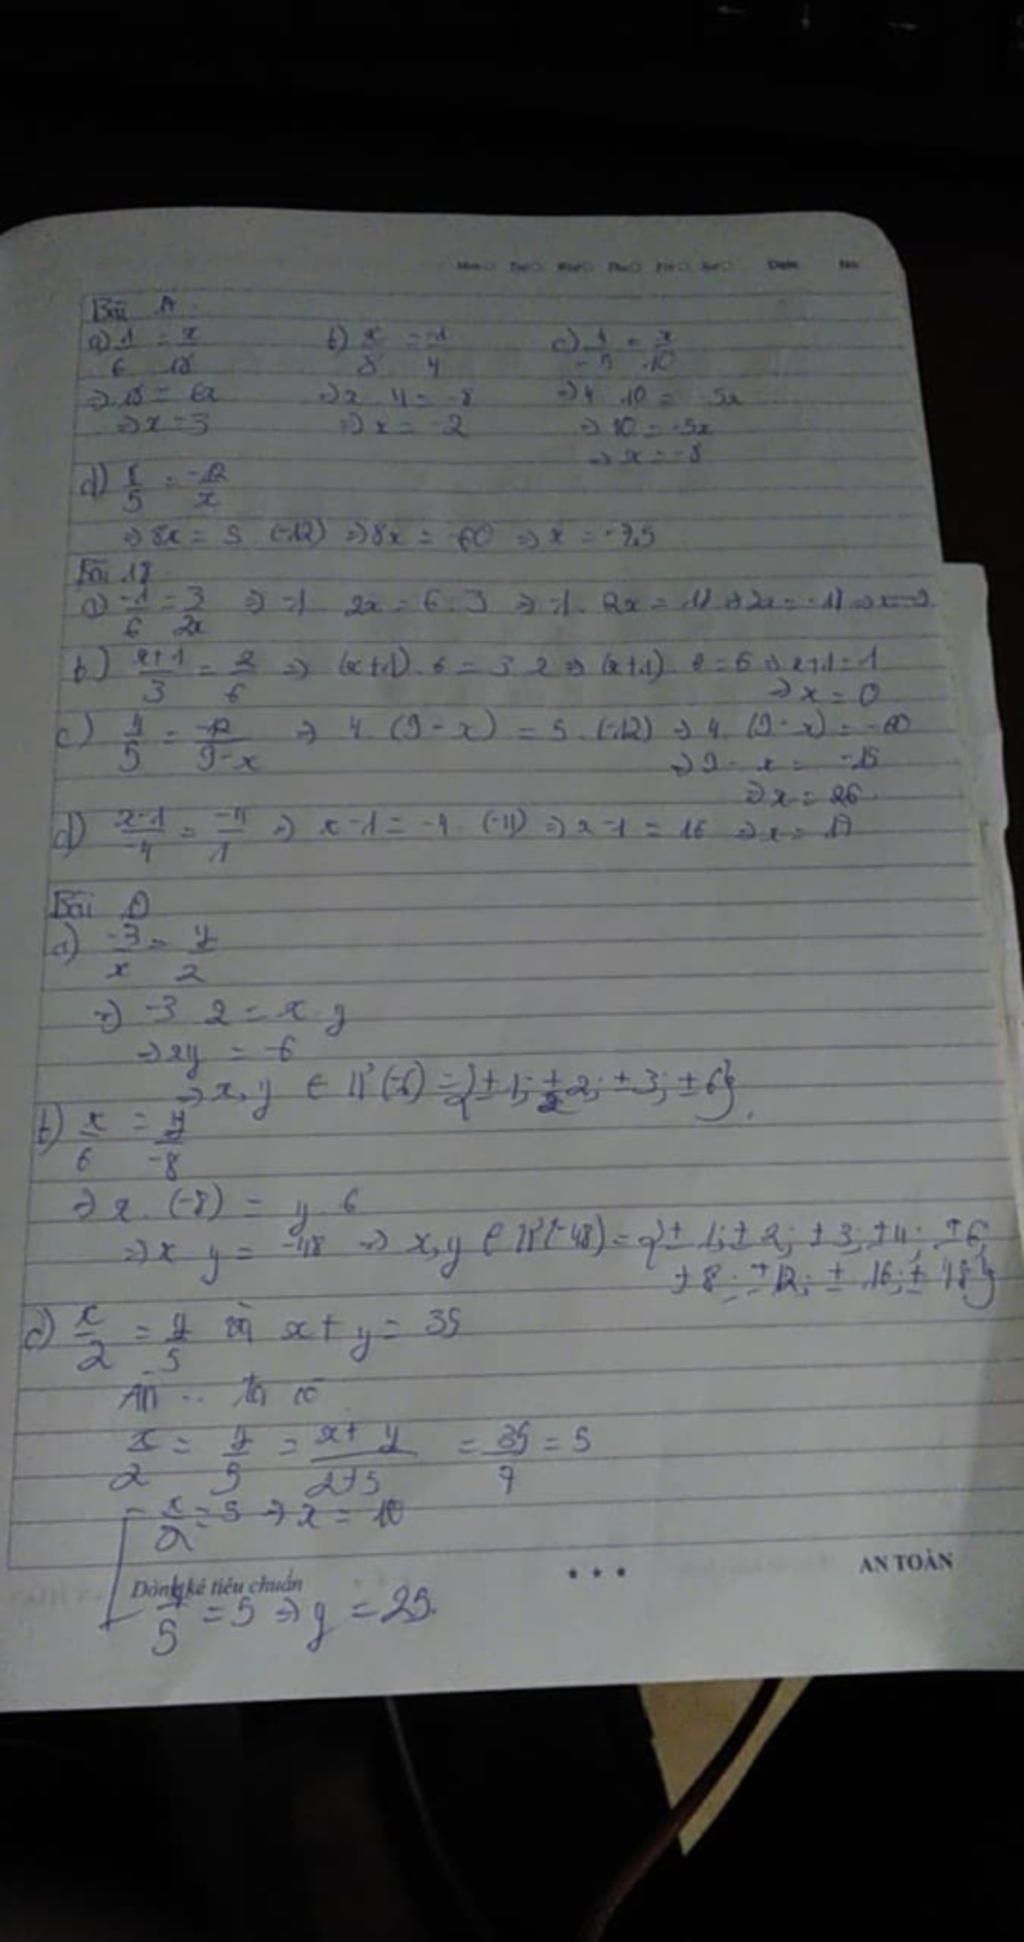 Bài
a) 1/6 = x/18 b) x/8 = -1/4 c) 4/-5 = x/10
=> 18 = 6x => x . 4 = -8 => 4 . 10 = -5x
=> x = 3 => x = -2 => 40 = -5x
=> x = -8
d) 8/5 = -12/x
=> 8x = 5 . (-12) => 8x = -60 => x = -7,5
Bài 18
a) -1/6 = 3/2x => -1 . 2x = 6 . 3 => -1 . 2x = 18 => 2x = -18 => x = -9
b) x+1/3 = 2/6 => (x+1) . 6 = 3 . 2 => (x+1) . 6 = 6 => x+1 = 1
=> x = 0
c) 4/5 = -12/9-x => 4 . (9-x) = 5 . (-12) => 4 . (9-x) = -60
=> 9 - x = -15
=> x = 26
d) x-1/-4 = -4/1 => x-1 = -4 . (-4) => x-1 = 16 => x = 17
Bài
a) -3/x = y/2
=> -3 . 2 = x . y
=> xy = -6
=> x, y ∈ Ư(-6) = {±1; ±2; ±3; ±6}.
b) x/6 = y/-8
=> x . (-8) = y . 6
=> x . y = -48 => x, y ∈ Ư(-48) = {±1; ±2; ±3; ±4; ±6;
±8; ±12; ±16; ±48}
c) x/2 = y/5 và x + y = 35
ta có
x/2 = y/5 = x+y/2+5 = 35/7 = 5
x/2 = 5 => x = 10
AN TOÀN
Dòng kẻ tiêu chuẩn
y/5 = 5 => y = 25.